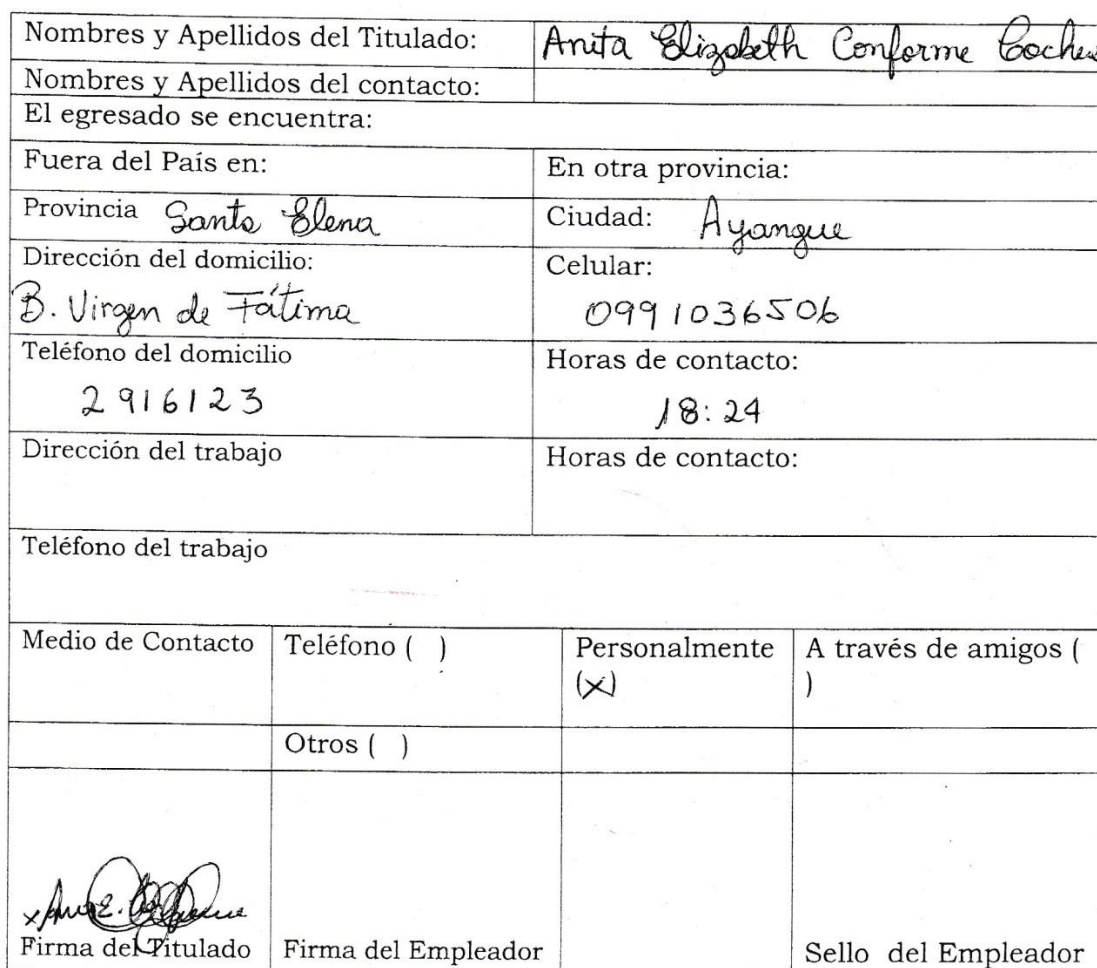 Nombres y Apellidos del Titulado: Anita Elizabeth Conforme
Nombres y Apellidos del contacto:
El egresado se encuentra:
Fuera del País en: En otra provincia:
Provincia Santa Elena Ciudad: Ayangue
Dirección del domicilio: Celular:
B. Virgen de Fátima 0991036506
Teléfono del domicilio Horas de contacto:
2916123 18:24
Dirección del trabajo Horas de contacto:
Teléfono del trabajo
Medio de Contacto Teléfono ( ) Personalmente A través de amigos (
(x) )
Otros ( )
Firma del Titulado Firma del Empleador Sello del Empleador